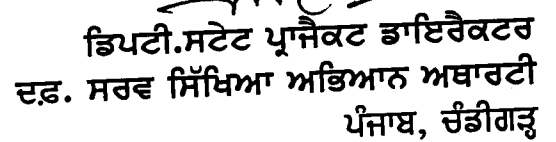 ਡਿਪਟੀ.ਸਟੇਟ ਪ੍ਰਾਜੈਕਟ ਡਾਇਰੈਕਟਰ
ਦਫ਼. ਸਰਵ ਸਿੱਖਿਆ ਅਭਿਆਨ ਅਥਾਰਟੀ
ਪੰਜਾਬ, ਚੰਡੀਗੜ੍ਹ